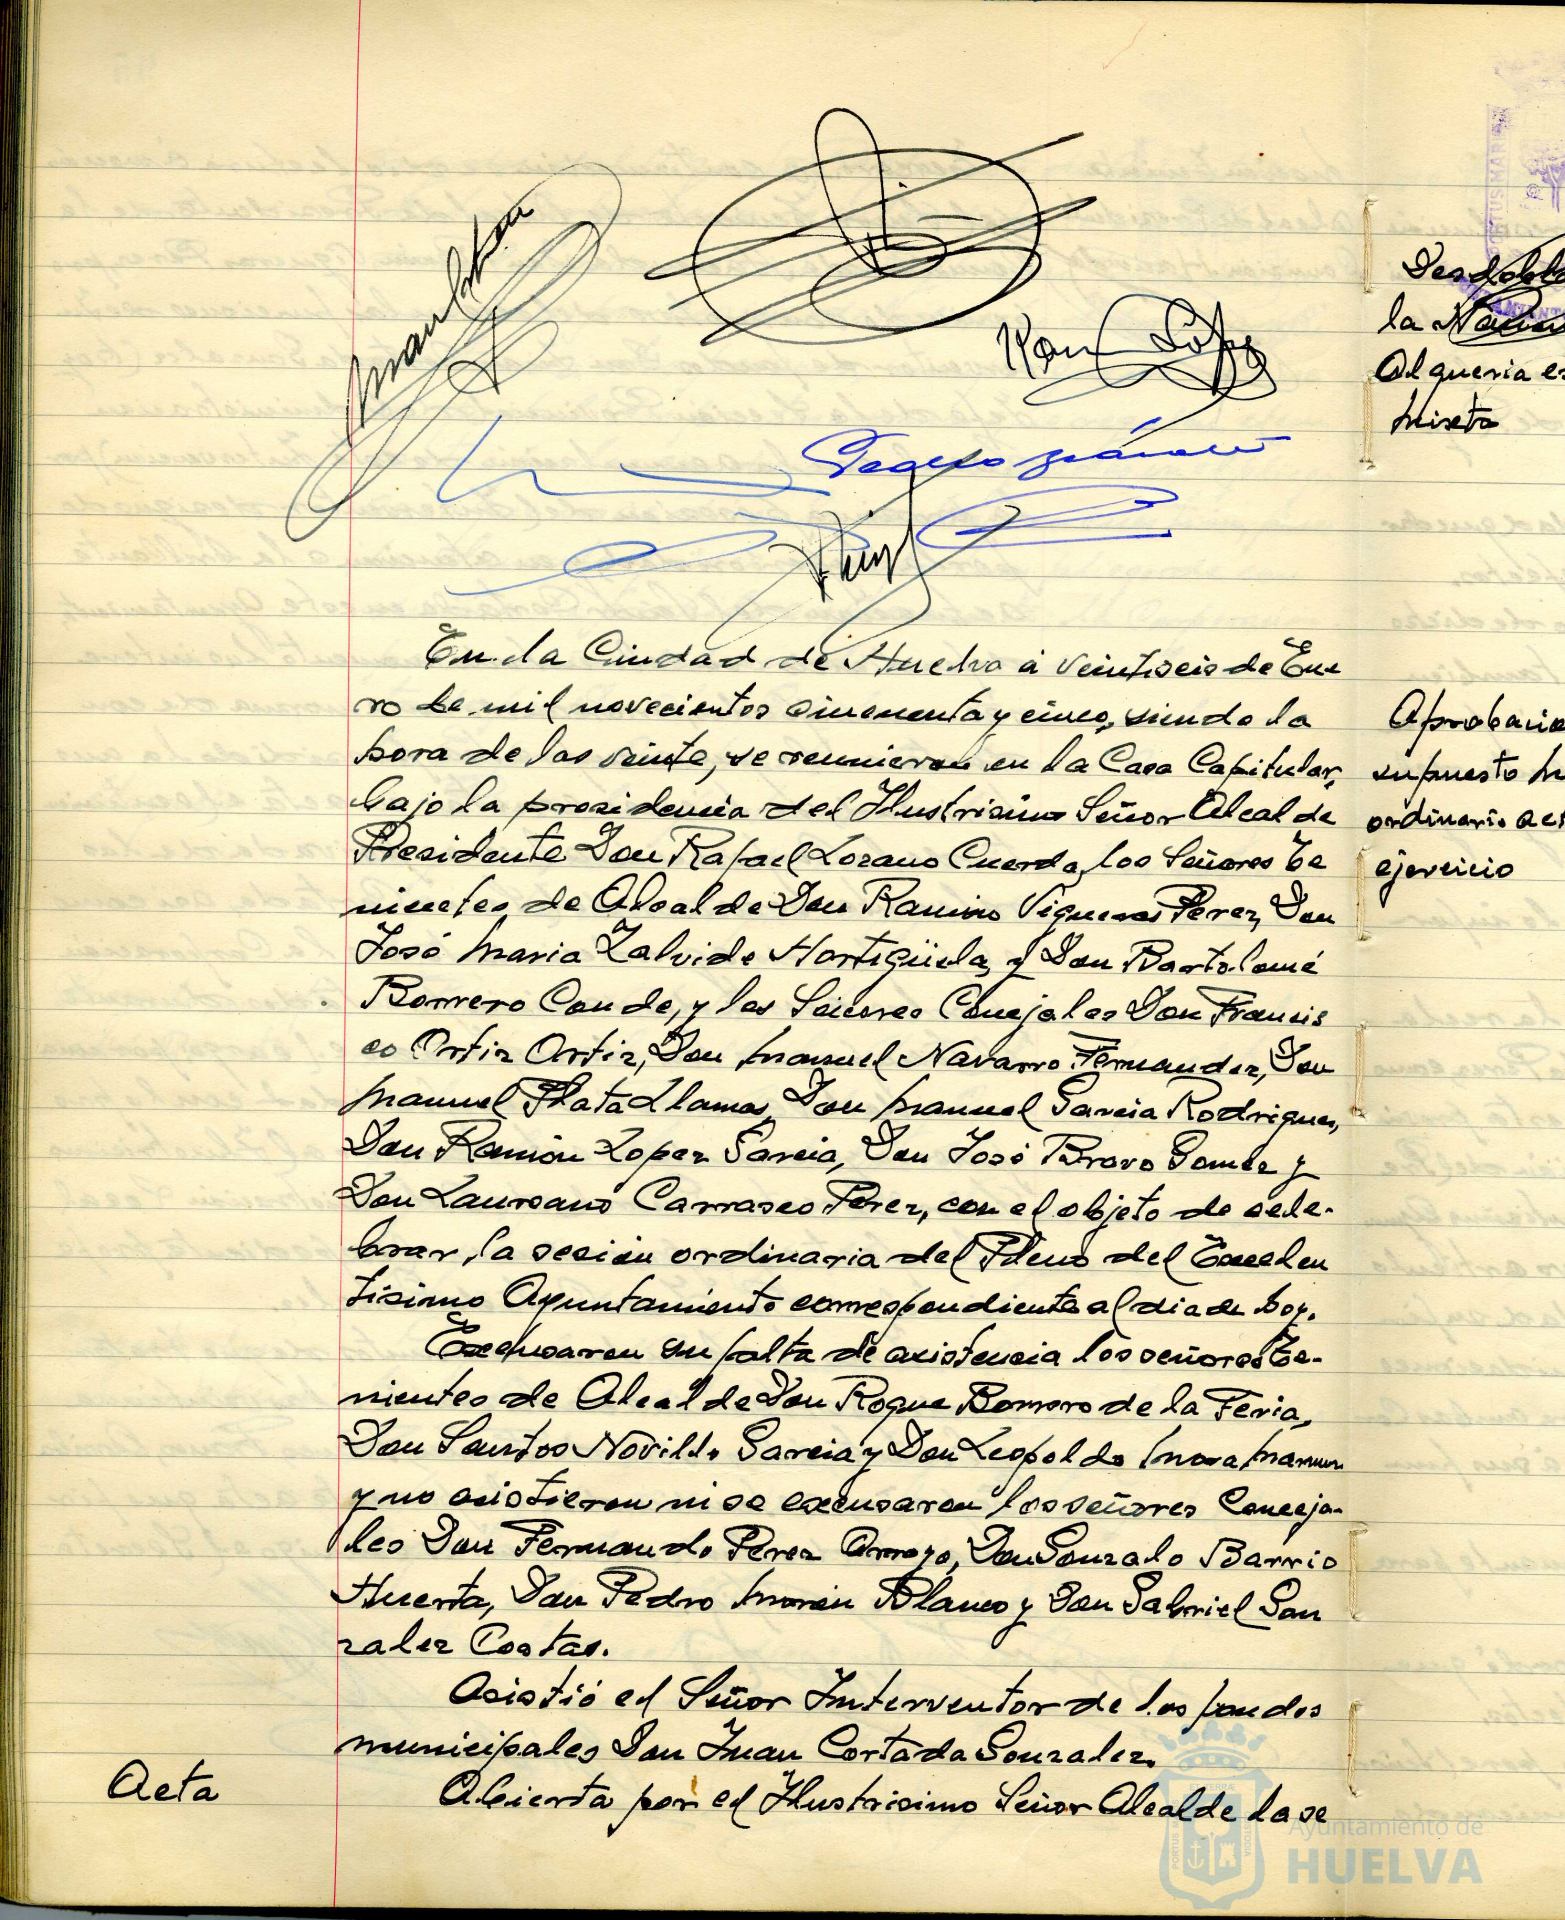 Ramón López
En la Ciudad de Huelva a veintiseis de Ene
ro de mil novecientos cincuenta y cinco, siendo la
hora de las veinte, se reunieron en la Casa Capitular,
bajo la presidencia del Ilustrisimo Señor Alcalde
Presidente Don Rafael Lozano Cuerda, los Señores Te
nientes de Alcalde Don Ramiro Vigueras Perez, Don
José Maria Zalvide Hortigüela, y Don Bartolomé
Romero Conde, y los Señores Concejales Don Francis
co Ortiz Ortiz, Don Manuel Navarro Fernandez, Don
Manuel Plata Llamas, Don Manuel Garcia Rodriguez,
Don Ramón Lopez Garcia, Don José Bravo Gomez y
Don Laureano Carrasco Perez, con el objeto de cele-
brar, la sesión ordinaria del Pleno del Excelen
tisimo Ayuntamiento correspondiente al dia de hoy.
Excusaron su falta de asistencia los señores Te-
nientes de Alcalde Don Roque Romero de la Feria,
Don Santos Novillo Garcia y Don Leopoldo Mora
y no asistieron ni se excusaron los señores Conceja-
les Don Fernando Perez Arroyo, Don Gonzalo Barrio
Huerta, Don Pedro Morón Blanco y Don Gabriel Gon
zalez Costas.
Asistió el Señor Interventor de los fondos
municipales Don Juan Cortada Gonzalez.
Acta
Abierta por el Ilustrisimo Señor Alcalde la se
Desdobla
la
Alqueria es
Miseta
Aprobacio
supuesto
ordinario
ejercicio
PORTUS MARIS
Ayuntamiento de
HUELVA